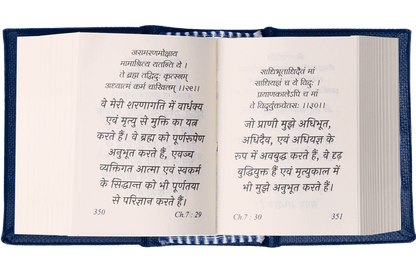 जरामरणमोक्षाय
मामाश्रित्य यतन्ति ये ।
ते ब्रह्म तद्विदुः कृत्स्नम्
अध्यात्मं कर्म चाखिलम् ।।२९।।
वे मेरी शरणागति में वार्धक्य
एवं मृत्यु से मुक्ति का यत्न
करते हैं। वे ब्रह्म को पूर्णरूपेण
अनुभूत करते हैं, एवञ्च
व्यक्तिगत आत्मा एवं स्वकर्म
के सिद्धान्त को भी पूर्णतया
से परिज्ञान करते हैं।
350
Ch.7 : 29
साधिभूताधिदैवं मां
साधियज्ञं च ये विदुः ।
प्रयाणकालेऽपि च मां
ते विदुर्युक्तचेतसः ।।३०।।
जो प्राणी मुझे अधिभूत,
अधिदैव, एवं अधियज्ञ के
रूप में अवबुद्ध करते हैं, वे दृढ़
बुद्धियुक्त हैं एवं मृत्युकाल में
भी मुझे अनुभूत करते हैं।
Ch.7 : 30
351